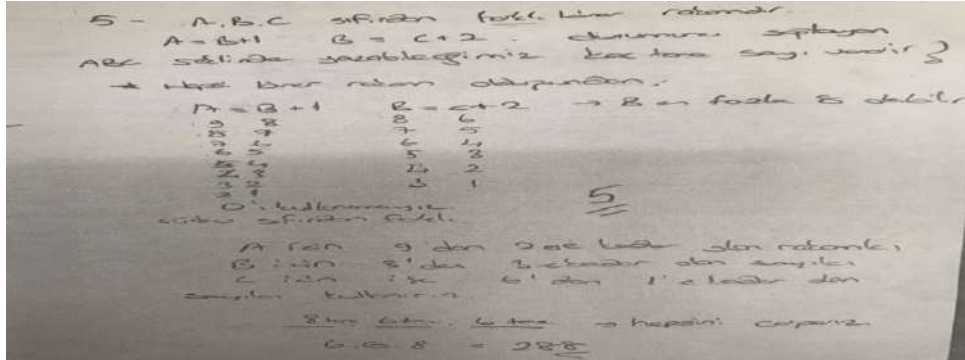 5 - A.B.C sıfırdan farklı birer rakamdır.
A = B+1 B = C+2 durumunu sağlayan
ABC şeklinde yazabileceğimiz kaç tane sayı vardır?
* Hepsi birer rakam olduğundan.
A = B + 1 B = C+2 → B en fazla 8 olabilir
9 8 8 6
8 7 7 5
7 6 6 4
6 5 5 3
5 4 4 2
4 3 3 1
3 2
2 1
5
0'ı kullanamayız
çünkü sıfırdan farklı.
A için 9'dan 2'ye kadar olan rakamları
B için 8'den 3'e kadar olan sayıları
C için ise 6'dan 1'e kadar olan
sayıları kullanırız.
8 tane 6 tane . 6 tane → hepsini çarparız
6.6.8 = 288